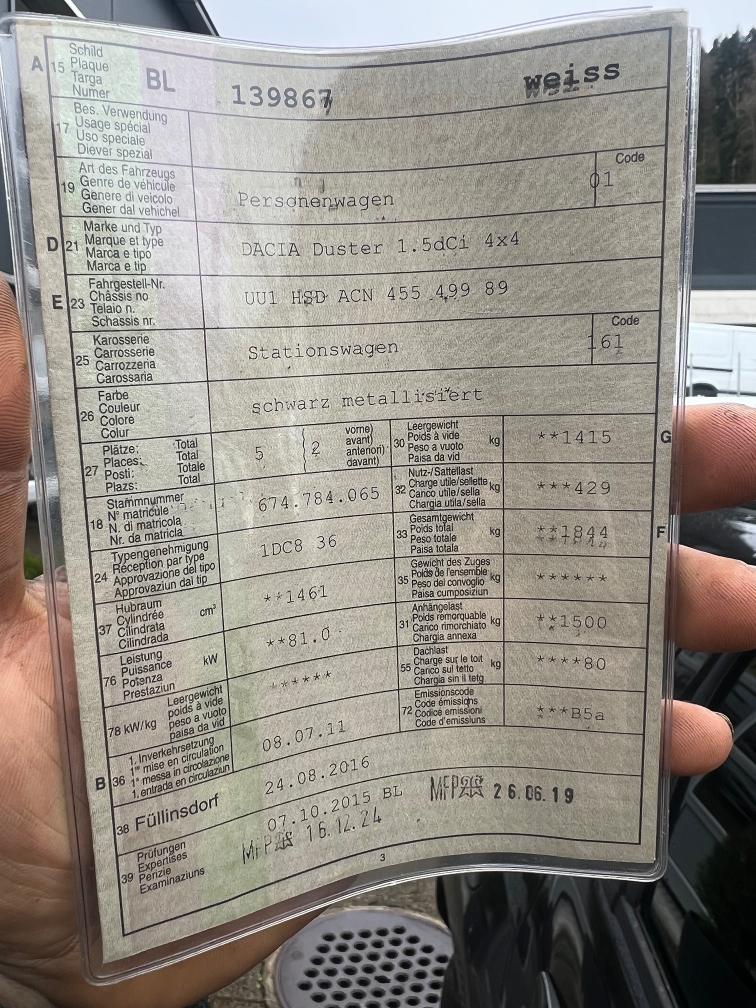 A 15 Schild
Plaque
Targa
Numer
BL 139867 weiss
17 Bes. Verwendung
Usage spécial
Uso speciale
Diever spezial
19 Art des Fahrzeugs
Genre de véhicule
Genere di veicolo
Gener dal vehichel
Personenwagen
Code
01
D 21 Marke und Typ
Marque et type
Marca e tipo
Marca e tip
DACIA Duster 1.5dCi 4x4
E 23 Fahrgestell-Nr.
Châssis no
Telaio n.
Schassis nr.
UU1 HSD ACN 455 499 89
25 Karosserie
Carrosserie
Carrozzeria
Carossaria
Stationswagen
Code
161
26 Farbe
Couleur
Colore
Colur
schwarz metallisiert
27 Plätze: Total
Places: Total
Posti: Totale
Plazs: Total
5 2
vorne)
avant)
anteriori)
davant)
30 Leergewicht
Poids à vide kg
Peso a vuoto
Paisa da vid
**1415
G
18 Stammnummer
N° matricule
N. di matricola
Nr. da matricla
674.784.065
32 Nutz-/Sattellast
Charge utile/sellette kg
Carico utile/sella
Chargia utila/sella
***429
24 Typengenehmigung
Réception par type
Approvazione del tipo
Approvaziun dal tip
1DC8 36
33 Gesamtgewicht
Poids total kg
Peso totale
Paisa totala
**1844
F
37 Hubraum
Cylindrée cm³
Cilindrata
Cilindrada
**1461
35 Gewicht des Zuges
Poids de l'ensemble kg
Peso del convoglio
Paisa cumposiziun
******
76 Leistung
Puissance kW
Potenza
Prestaziun
**81.0
31 Anhängelast
Poids remorquable kg
Carico rimorchiato
Chargia annexa
**1500
78 kW/kg Leergewicht
poids à vide
peso a vuoto
paisa da vid
******
55 Dachlast
Charge sur le toit kg
Carico sul tetto
Chargia sin il tetg
****80
72 Emissionscode
Code émissions
Codice emissioni
Code d'emissiuns
***B5a
B 36 1. Inverkehrsetzung
1re mise en circulation
1a messa in circolazione
1. entrada en circulaziun
08.07.11
38 Füllinsdorf
24.08.2016
39 Prüfungen
Expertises
Perizie
Examinaziuns
07.10.2015 BL
MFP 26.06.19
MFP 16.12.24
3